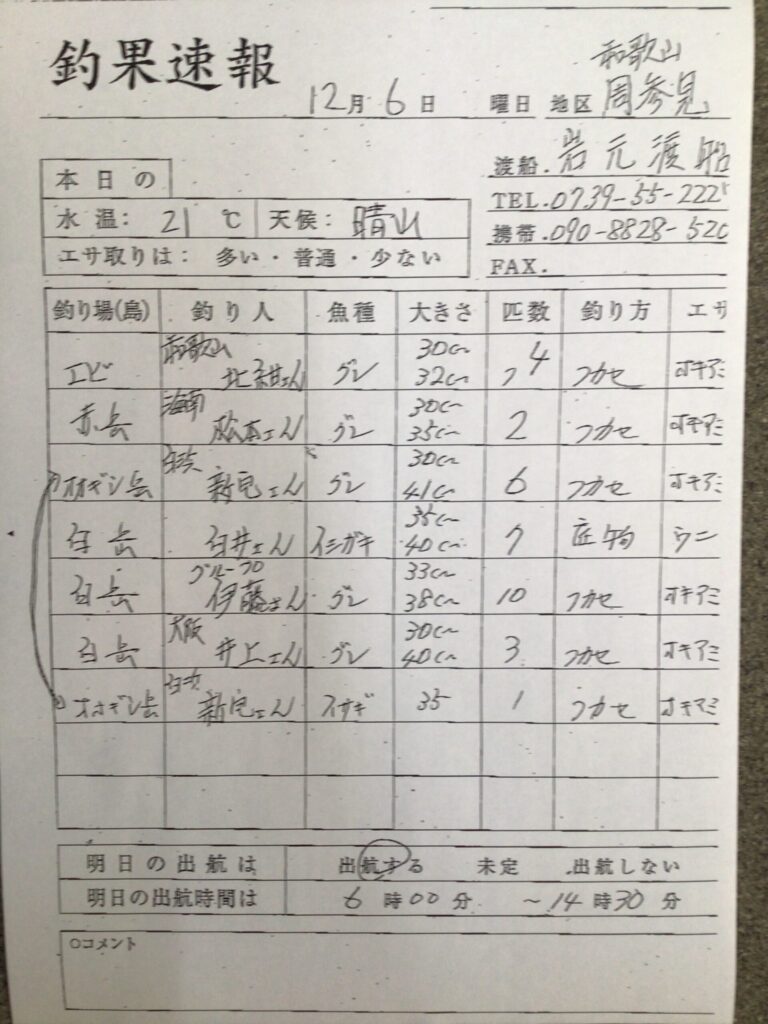 釣果速報
12月6日 曜日 地区 和歌山 周参見
渡船. 岩元渡船
本日の
TEL.0739-55-222
水温: 21 ℃ 天候: 晴
携帯.090-8828-520
エサ取りは: 多い・普通・少ない
FAX.
釣り場(島) 釣り人 魚種 大きさ 匹数 釣り方 エサ
エビ 和歌山 北さん グレ 30cm 32cm 4 フカセ オキアミ
赤島 海南 松本さん グレ 30cm 35cm 2 フカセ オキアミ
オオギシ島 新宅さん グレ 30cm 41cm 6 フカセ オキアミ
白島 白井さん イシガキ 35cm 40cm 7 底物 ウニ
白島 グループロ 伊藤さん グレ 33cm 38cm 10 フカセ オキアミ
白島 大阪 井上さん グレ 30cm 40cm 3 フカセ オキアミ
オオギシ島 新宅さん イサギ 35 1 フカセ オキアミ
明日の出航は 出航する 未定 出航しない
明日の出航時間は 6時00分 ~14時30分
○コメント